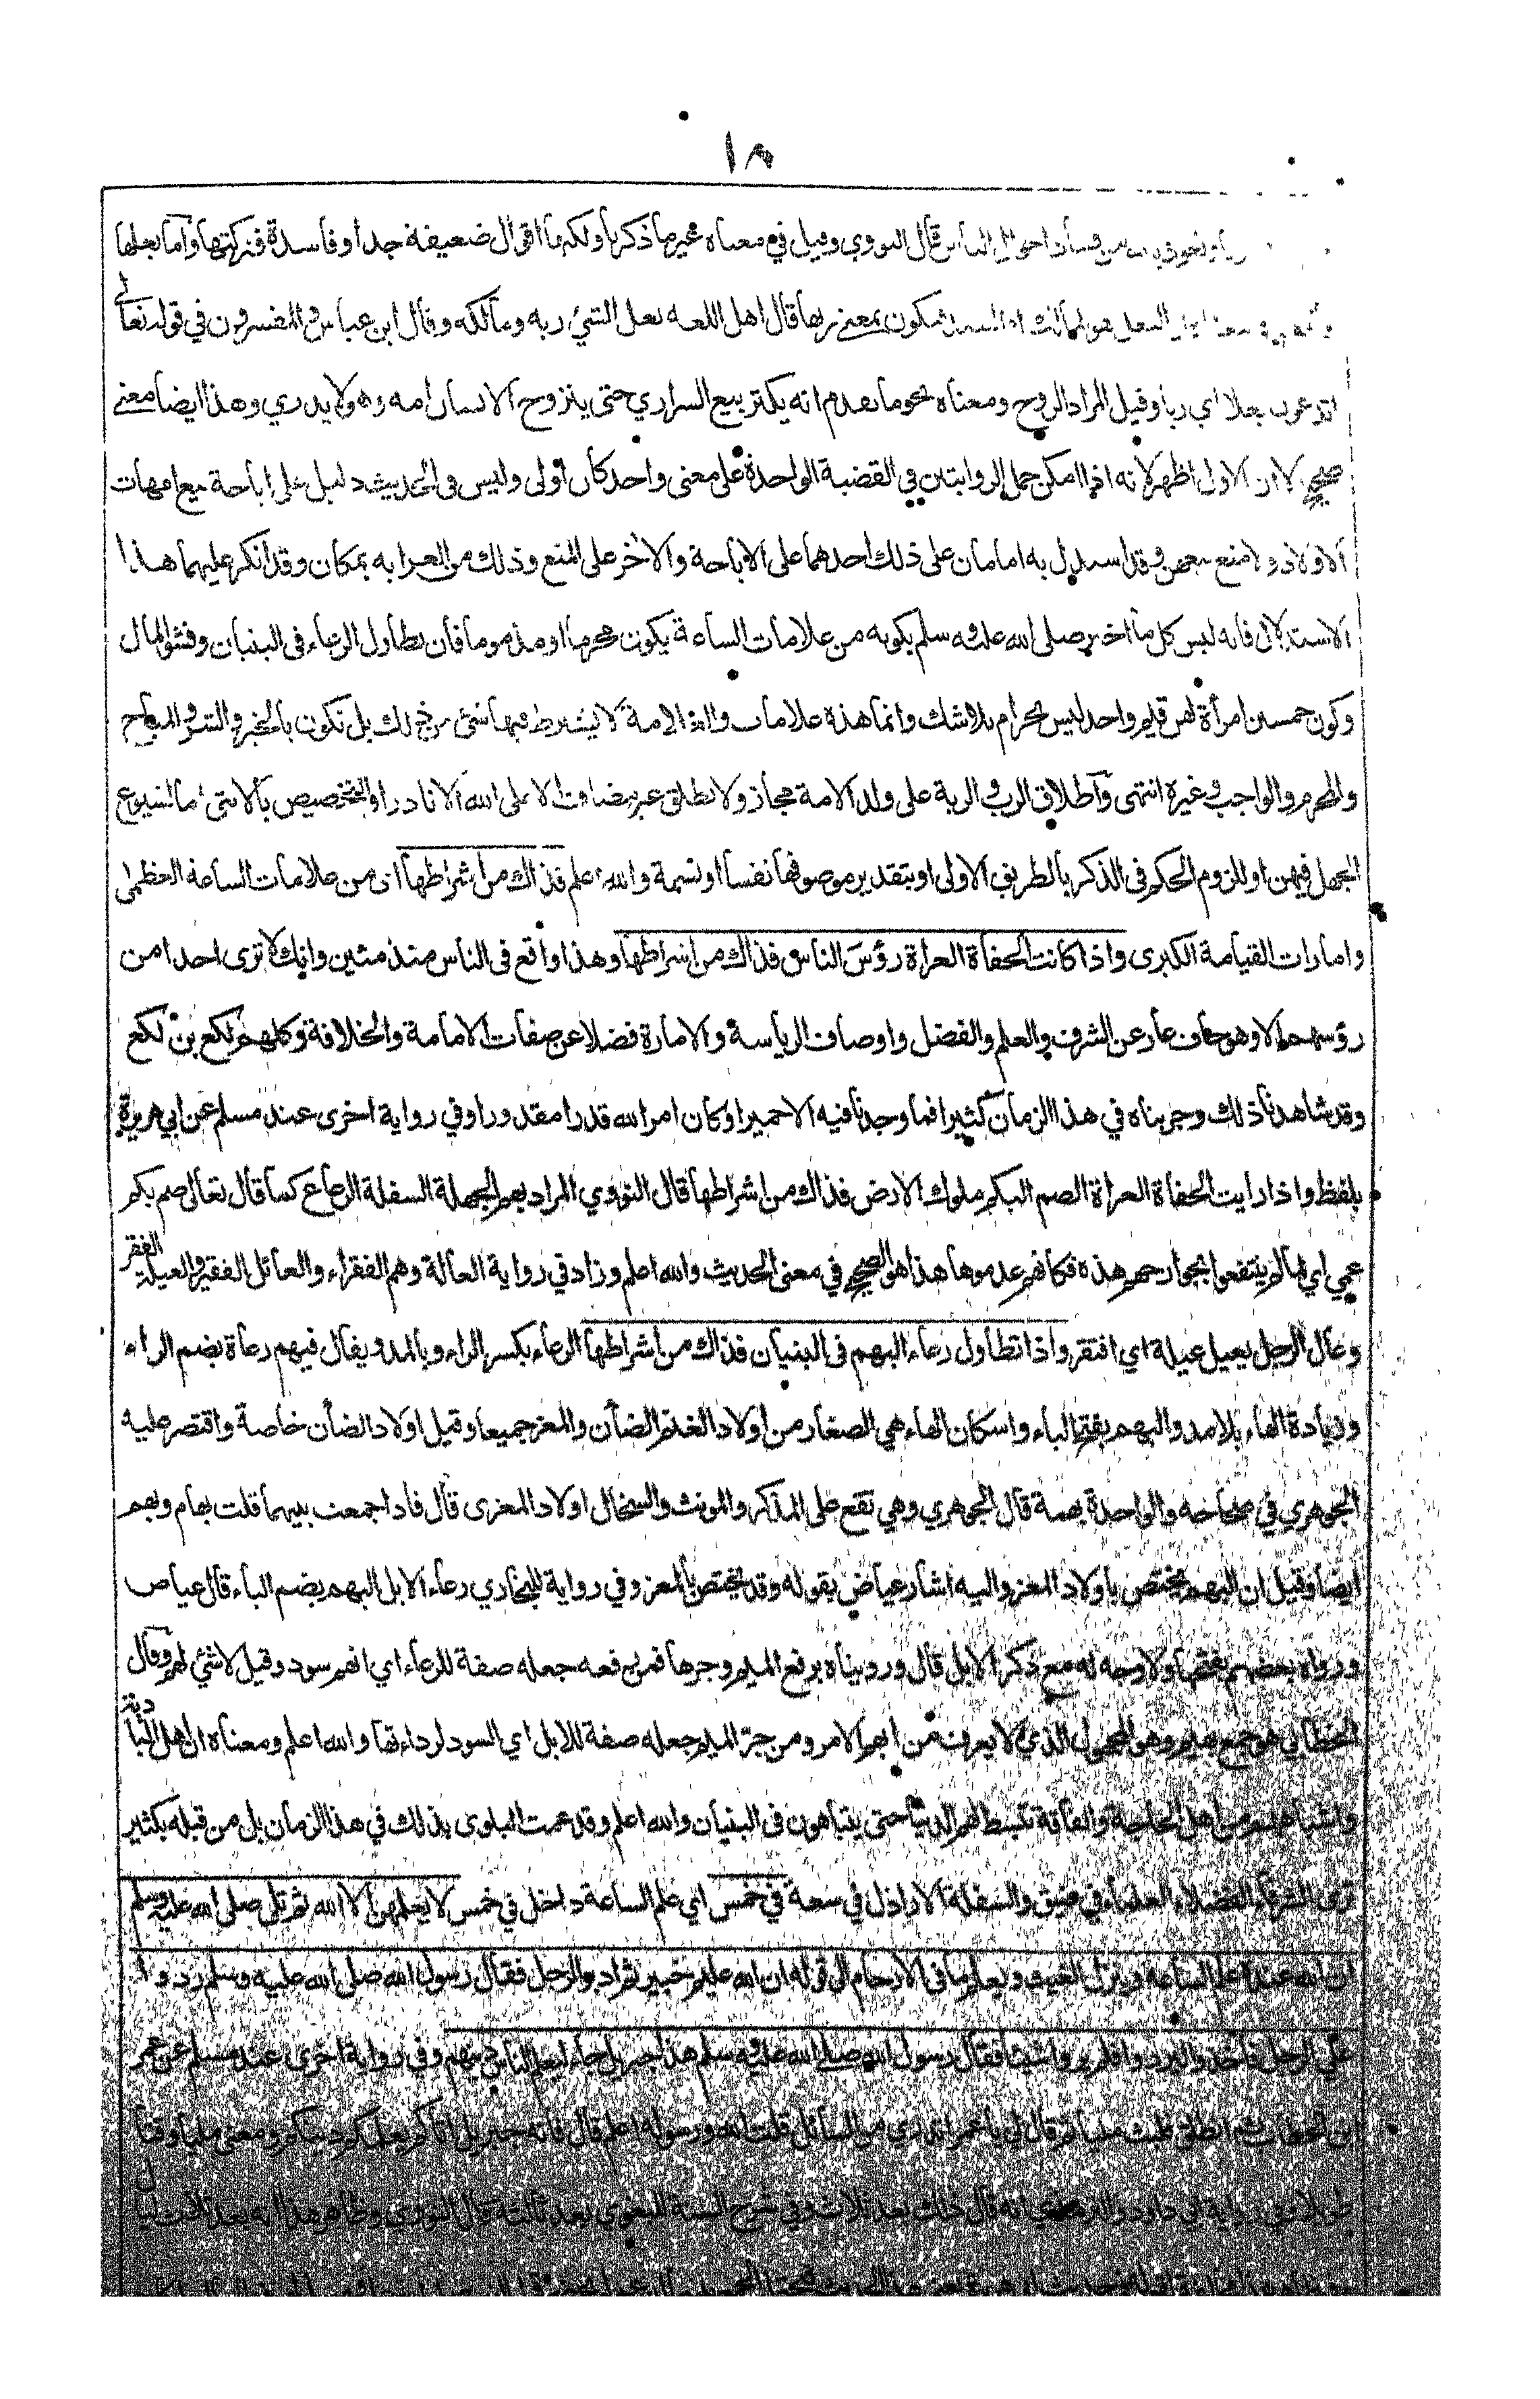 ١٨
من فساد احوال الناس قال النووي وقيل في معناه غير ما ذكر ناولكنها اقوال ضعيفة جدا وفاسدة فتركتها وأما بعلها
البعل هو المالك فيكون بمعنى ربها قال اهل اللغه بعل الشئ ربه ومالكه وقال ابن عباس والمفسرون في قوله تعالى
اتدعون بعلا اي ربا وقيل المراد الزوج ومعناه نحو ما تقدم انه يكثر بيع السراري حتى يتزوج الانسان امه وهو لا يدري وهذا ايضا معنى
صحيح الا ان الاول اظهر لانه اذا امكن حمل الروايتين في القضية الواحدة على معنى واحد كان اولى وليس في الحديث دليل على اباحة بيع امهات
الاولاد ولا منع بيعهن وقد استدل به امامان على ذلك احدهما على الاباحة والاخر على المنع وذلك من الغرابه بمكان وقد انكر عليهما هذا
الاستدلال فانه ليس كل ما اخبر صلى الله عليه وسلم بكونه من علامات الساعة يكون محرما او مذموما فان تطاول الرعاء في البنيان وفشو المال
وكون خمسين امرأة لهن قيم واحد ليس بحرام بلا شك وانما هذه علامات والعلامة لا يشترط فيها شئ من ذلك بل تكون بالخير والشر والمباح
والمحرم والواجب وغيره انتهى وآطلاق الرب والربة على ولد الامة مجاز ولا يطلق غير مضاف الا على الله الا نادرا والتخصيص بالانثى اما لشيوع
الجهل فيهن او للزوم الحكم في الذكر بالطريق الاولى او بتقدير موصوفها نفسا او نسمة والله اعلم فذاك من اشراطها اى من علامات الساعة العظمى
وامارات القيامة الكبرى واذا كانت الحفاة العراة رؤسَ الناس فذاك من اشراطها وهذا واقع في الناس منذ مئين وانك لا ترى احدا من
رؤسهم الا وهو حاف عار عن الشرف والعلم والفضل واوصاف الرياسة والامارة فضلا عن صفات الامامة والخلافة وكلهم لكع بن لكع
وقد شاهدنا ذلك وجربناه في هذا الزمان كثيرا فما وجدنا فيه الا حميرا وكان امر الله قدرا مقدورا وفي رواية اخرى عند مسلم عن ابي هريرة
بلفظ واذا رايت الحفاة العراة الصم البكم ملوك الارض فذاك من اشراطها قال النووي المراد بهم الجهلة السفلة الرعاع كما قال تعالى صم بكم
عمي اي لما لم ينتفعوا بجوارحهم هذه فكانهم عدموها هذا هو الصحيح في معنى الحديث والله اعلم وزاد في رواية العالة وهم الفقراء والعائل الفقير والعيلة الفقر
وعال الرجل يعيل عيلة اي افتقر واذا تطاول رعاء البهم في البنيان فذاك من اشراطها الرعاء بكسر الراء وبالمد ويقال فيهم رعاة بضم الراء
وزيادة الهاء بلا مد والبهم بفتح الباء واسكان الهاء هي الصغار من اولاد الغنم الضأن والمعز جميعا وقيل اولاد الضأن خاصة واقتصر عليه
الجوهري في صحاحه والواحدة بهمة قال الجوهري وهي تقع على المذكر والمونث والسخال اولاد المعزى قال فاذا جمعت بينهما قلت بهام وبهم
ايضا وقيل ان البهم يختص باولاد المعز واليه اشار عياض بقوله وقد يختص بالمعز وفي رواية للبخاري رعاء الابل البهم بضم الباء قال عياض
ورواه بعضهم بفتحها ولا وجه له مع ذكر الابل قال ورويناه برفع الميم وجرها فمن رفعه جعله صفة للرعاء اي انهم سود وقيل لا شئ لهم وقال
الخطابي هو جمع بهيم وهو المجهول الذي لا يعرف من ابهم الامر ومن جرّ الميم جعله صفة للابل اي السود لرداءتها والله اعلم ومعناه ان اهل البادية
واشباههم من اهل الحاجة والفاقة تبسط لهم الدنيا حتى يتباهون في البنيان والله اعلم وقد عمت البلوى بذلك في هذا الزمان بل من قبله بكثير
ترى الشرفاء الفضلاء العلماء في ضيق والسفلة الاراذل في سعة في خمس اي علم الساعة داخل في خمس لا يعلمهن الا الله ثم تلى صلى الله عليه وسلم
ان الله عنده علم الساعة وينزل الغيث ويعلم ما في الارحام الى قوله ان الله عليم خبير ثم ادبر الرجل فقال رسول الله صلى الله عليه وسلم ردوا
علي الرجل فاخذوا ليردوه فلم يروا شيئا فقال رسول الله صلى الله عليه وسلم هذا جبريل جاء ليعلم الناس دينهم وفي رواية اخرى عند مسلم عن عمر
ابن الخطاب ثم انطلق فلبث مليا ثم قال لي يا عمر اتدري من السائل قلت الله ورسوله اعلم قال فانه جبريل اتاكم يعلمكم دينكم ومعنى مليا وقتا
طويلا وفي رواية ابي داود والترمذي انه قال ذلك بعد ثلاث وفي شرح السنة للبغوي بعد ثالثة قال النووي وظاهر هذا انه بعد ثلاث ليال